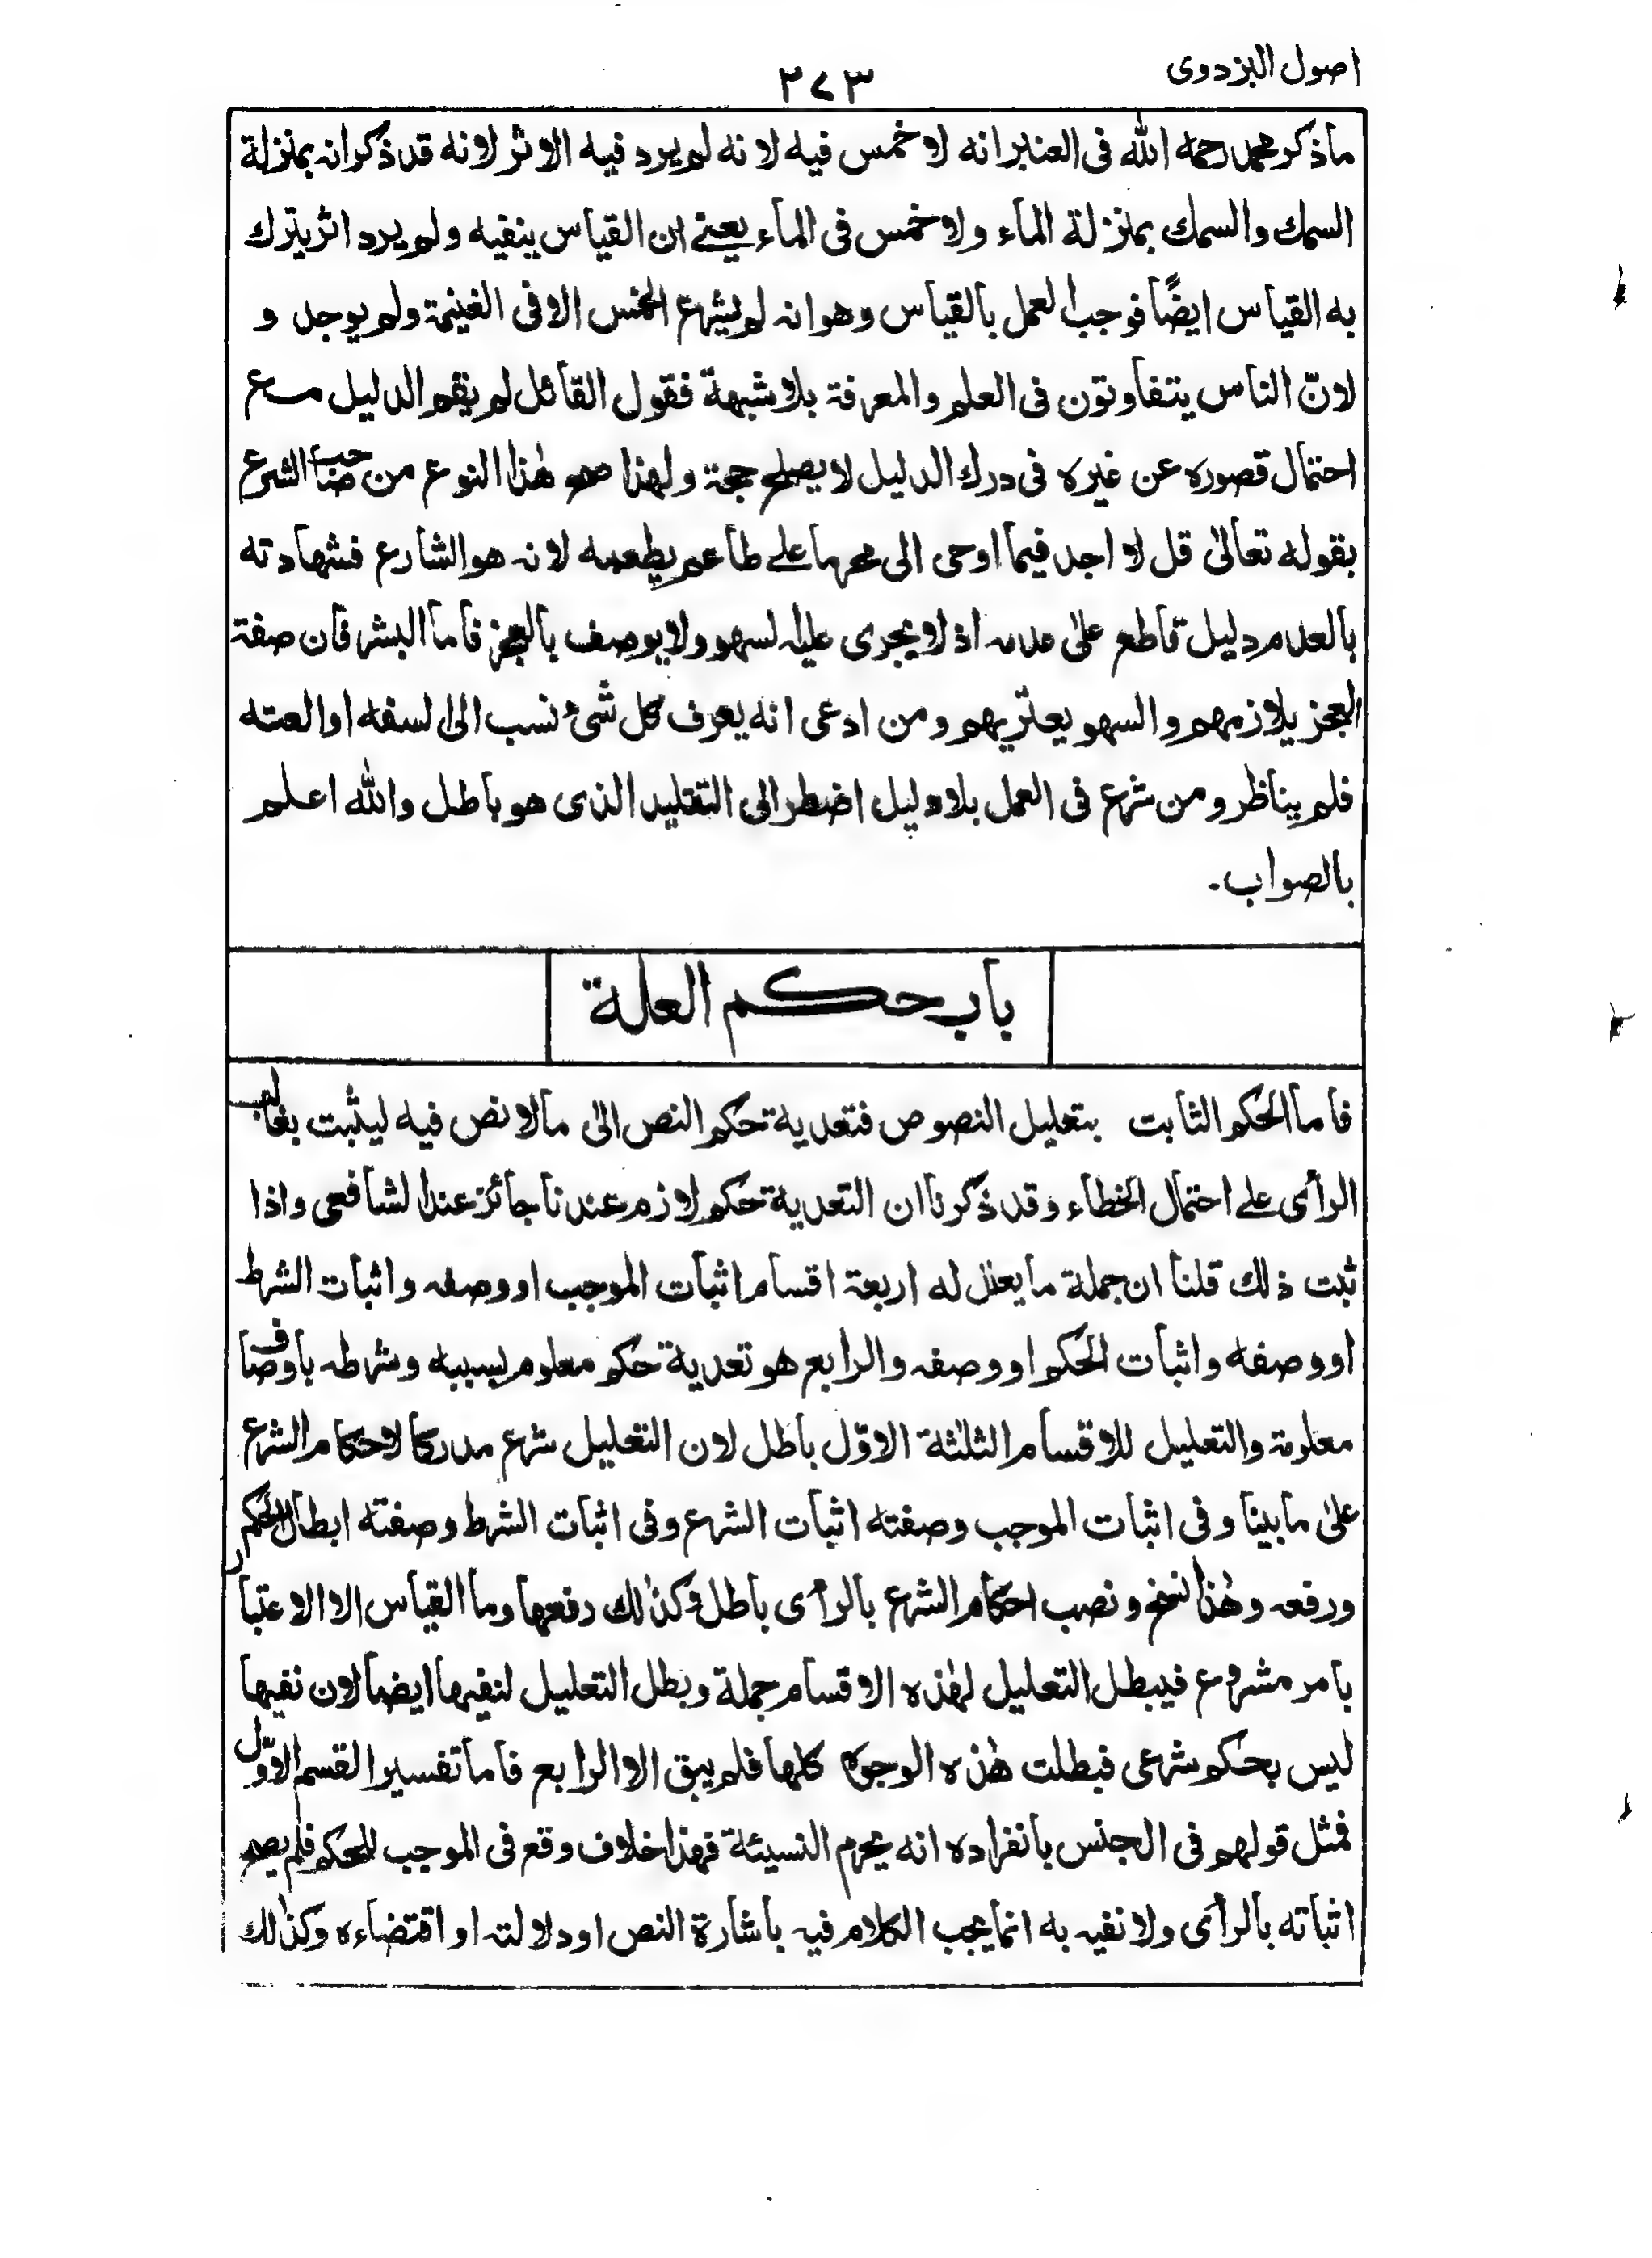 اصول البزدوى
٢٧٣
ماذكر محمد رحمه الله فى العنبر انه لا خمس فيه لانه لم يرد فيه الاثر لانه قد ذكر انه بمنزلة
السمك والسمك بمنزلة الماء ولا خمس فى الماء يعنے ان القياس ينفيه ولم يرد اثر يترك
به القياس ايضًا فوجب العمل بالقياس وهو انه لم يشرع الخمس الا فى الغنيمة ولم يوجد و
لانّ الناس يتفاوتون فى العلم والمعرفة بلا شبهة فقول القائل لم يقم الدليل مع
احتمال قصوره عن غيره فى درك الدليل لا يصلح حجة ولهذا صح هٰذا النوع من صاحب الشرع
بقوله تعالىٰ قل لا اجد فيما اوحى الى محرما علے طاعم يطعمه لانه هو الشارع فشهادته
بالعدم دليل قاطع علىٰ عدمه اذ لا يجرى عليه السهو ولا يوصف بالعجز فاما البشر فان صفة
العجز يلازمهم والسهو يعتريهم ومن ادعى انه يعرف كل شئ نسب الى السفه او العته
فلم يناظر ومن شرع فى العمل بلا دليل اضطر الى التقليد الذى هو باطل والله اعلم
بالصواب.
باب حكم العلة
فاما الحكم الثابت بتعليل النصوص فتعدية حكم النص الىٰ مالا نص فيه ليثبت بغالب
الرأى علے احتمال الخطاء وقد ذكرنا ان التعدية حكم لازم عندنا جائز عند الشافعى واذا
ثبت ذلك قلنا ان جملة ما يعلل له اربعة اقسام اثبات الموجب او وصفه واثبات الشرط
او وصفه واثبات الحكم او وصفه والرابع هو تعدية حكم معلوم بسببه وشرطه باوصاف
معلومة والتعليل للاقسام الثلٰثة الاوّل باطل لان التعليل شرع مدركا لاحكام الشرع
علىٰ ما بينا وفى اثبات الموجب وصفته اثبات الشرع وفى اثبات الشرط وصفته ابطال الحكم
ورفعه وهٰذا نسخ ونصب احكام الشرع بالرأى باطل وكذٰلك رفعها وما القياس الا الاعتبار
بامر مشروع فيبطل التعليل لهٰذه الاقسام جملة وبطل التعليل لنفيها ايضا لان نفيها
ليس بحكم شرعى فبطلت هٰذه الوجوه كلها فلم يبق الا الرابع فاما تفسير القسم الاوّل
فمثل قولهم فى الجنس بانفراده انه يحرم النسيئة فهذا خلاف وقع فى الموجب للحكم فلم يصح
اثباته بالرأى ولا نفيه به انما يجب الكلام فيه باشارة النص او دلالته او اقتضاءه وكذٰلك